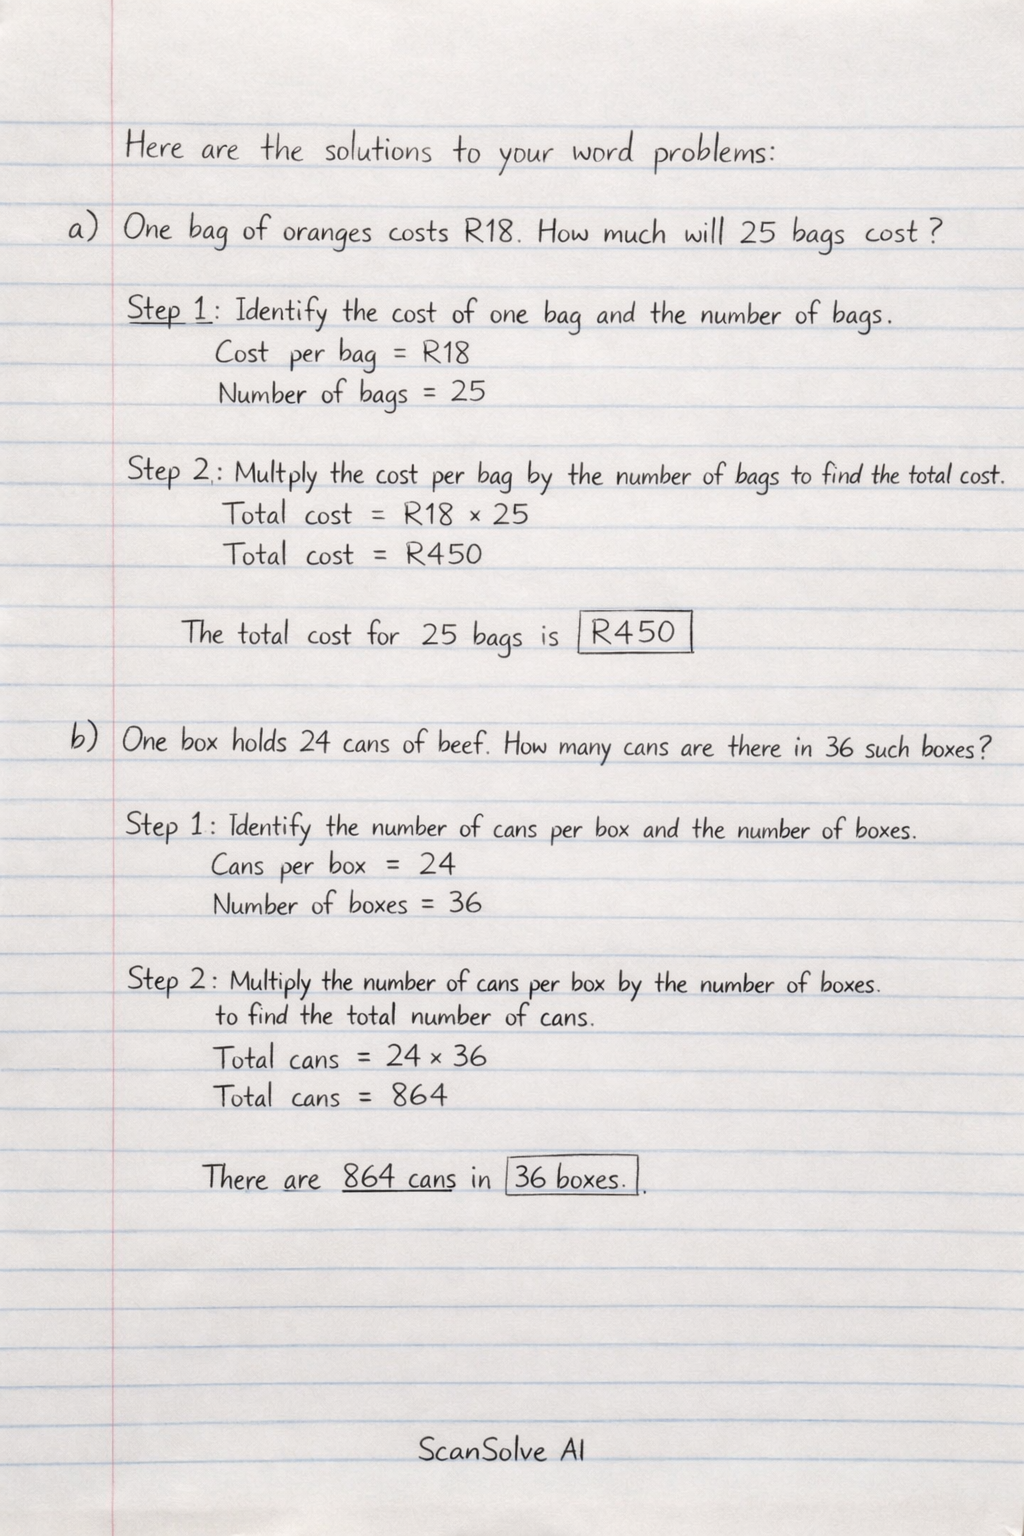 Here are the solutions to your word problems:
a) One bag of oranges costs R18. How much will 25 bags cost?
Step 1: Identify the cost of one bag and the number of bags.
Cost per bag = R18
Number of bags = 25
Step 2.: Multply the cost per bag by the number of bags to find the total cost.
Total cost = R18 × 25
Total cost = R450
The total cost for 25 bags is R450
b) One box holds 24 cans of beef. How many cans are there in 36 such boxes?
Step 1: Identify the number of cans per box and the number of boxes.
Cans per box = 24
Number of boxes = 36
Step 2: Multiply the number of cans per box by the number of boxes.
to find the total number of cans.
Total cans = 24 × 36
Total cans = 864
There are 864 cans in 36 boxes..
ScanSolve AI